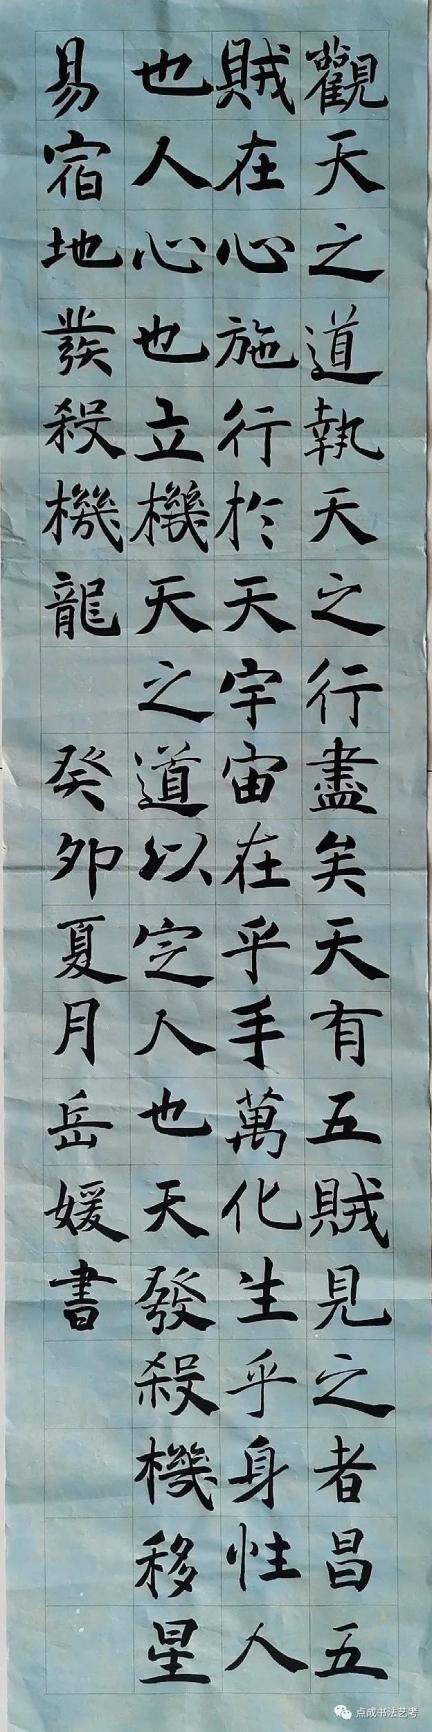 觀天之道執天之行盡矣天有五賊見之者昌五
賊在心施行於天宇宙在乎手萬化生乎身性人
也人心也立機天之道以定人也天發殺機移星
易宿地發殺機龍 癸卯夏月岳媛書
点成书法艺考